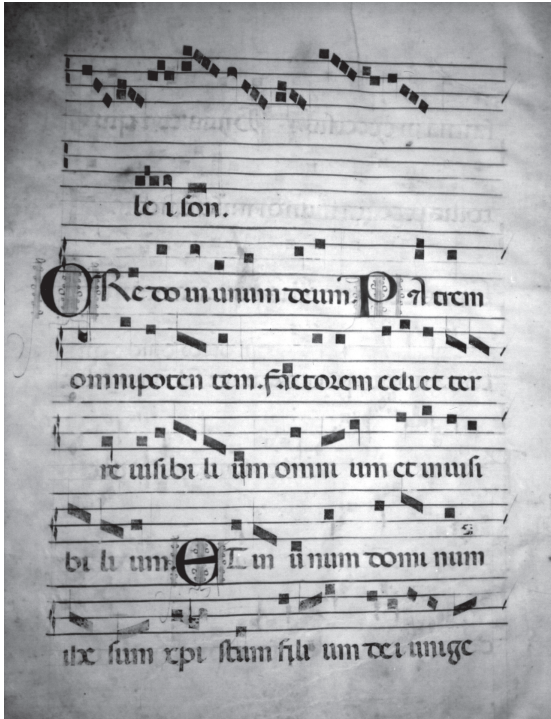 le i son.
CRe do in unum deum. PA trem
omnipoten tem. factorem celi et ter
re visibi li um omni um et invisi
bi li um ET in unum domi num
ihe sum xpi stum fili um dei unige